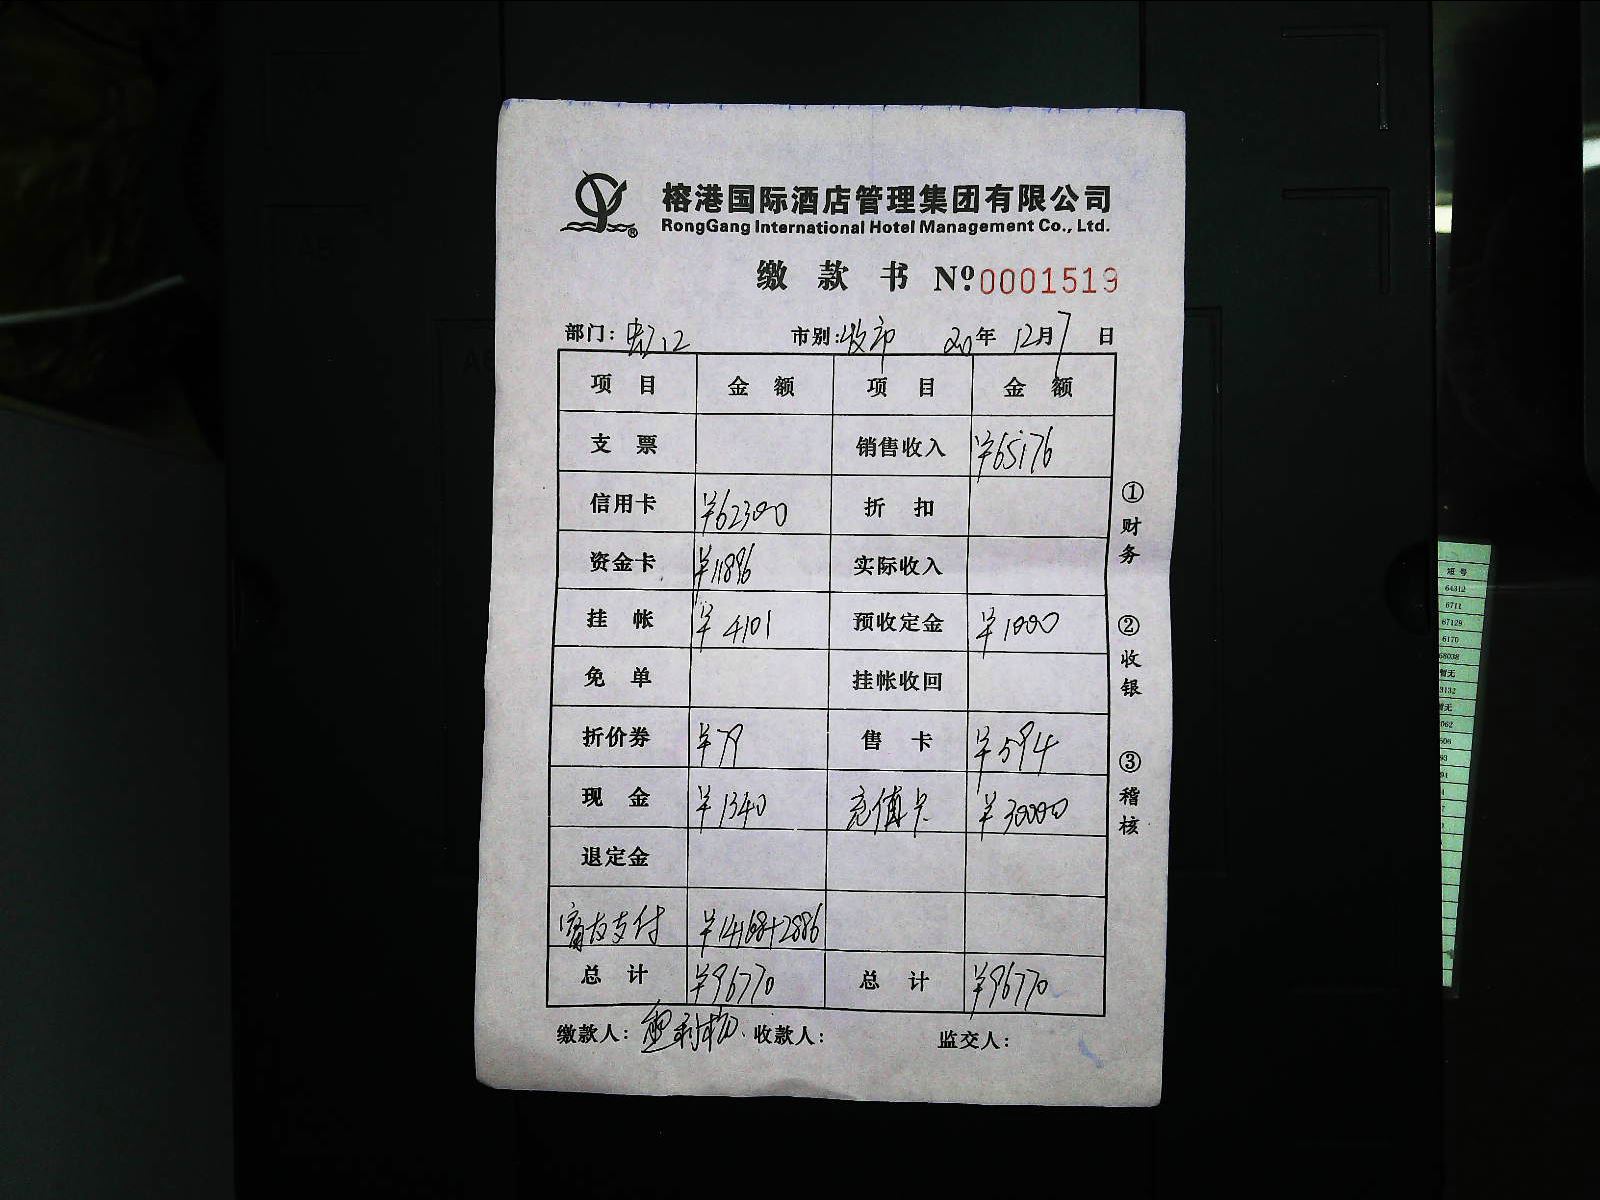 榕港国际酒店管理集团有限公司
RongGang International Hotel Management Co., Ltd.
缴款书 Nº:0001519
部门: 市别:收市 20年12月7日
项目 金额 项目 金额
支票 销售收入 ¥65176
信用卡 ¥62300 折扣
资金卡 ¥11896 实际收入
挂帐 ¥4101 预收定金 ¥1000
免单 挂帐收回
折价券 ¥79 售卡 ¥594
现金 ¥1340 充值卡 ¥30000
退定金
支付 ¥14168+2886
总计 ¥96770 总计 ¥96770
缴款人: 收款人: 监交人:
①财务
②收银
③稽核
短号
64312
6711
67129
6170
68038
暂无